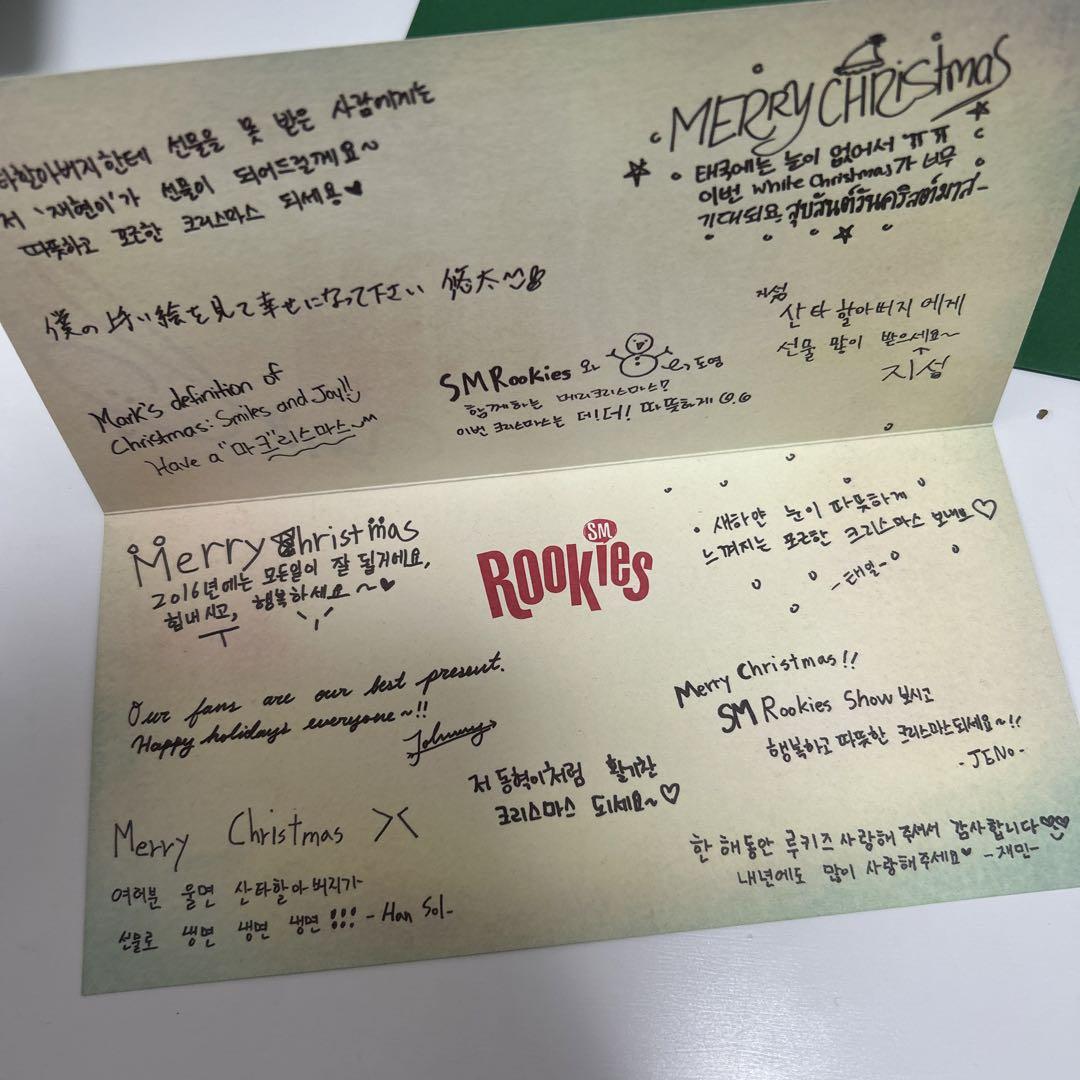 타할아버지한테 선물을 못 받은 사람에게는
저 '재현이'가 선물이 되어드릴께요~
따뜻하고 포근한 크리스마스 되세용♥
MERRY CHRISTMAS
태국에는 눈이 없어서 ㅠㅠ
이번 White Christmas가 너무
기대되요 สุขสันต์วันคริสต์มาส
僕の上手い絵を見て幸せになって下さい 悠太
지성
산타할아버지에게
선물 많이 받으세요~
지성
Mark's definition of
Christmas: Smiles and Joy!!
Have a "마크"리스마스~
SMRookies 와 도영
함께하는 메리크리스마스?
이번 크리스마스는 더!더! 따뜻하게
Merry Christmas
2016년에는 모든일이 잘 될거에요,
힘내시고, 행복하세요~♥
SM
ROOKIES
새하얀 눈이 따뜻하게
느껴지는 포근한 크리스마스 보내요♡
-태일-
Our fans are our best present.
Happy holidays everyone~!!
Johnny
Merry Christmas!!
SM Rookies Show 보시고
행복하고 따뜻한 크리스마스되세요~!!
-JENO-
저 동혁이처럼 활기찬
크리스마스 되세요~♡
Merry Christmas ><
여러분 울면 산타할아버지가
선물로 냉면 냉면 냉면!!! -Han Sol-
한 해동안 루키즈 사랑해주셔서 감사합니다♡♡
내년에도 많이 사랑해주세요♥ -재민-